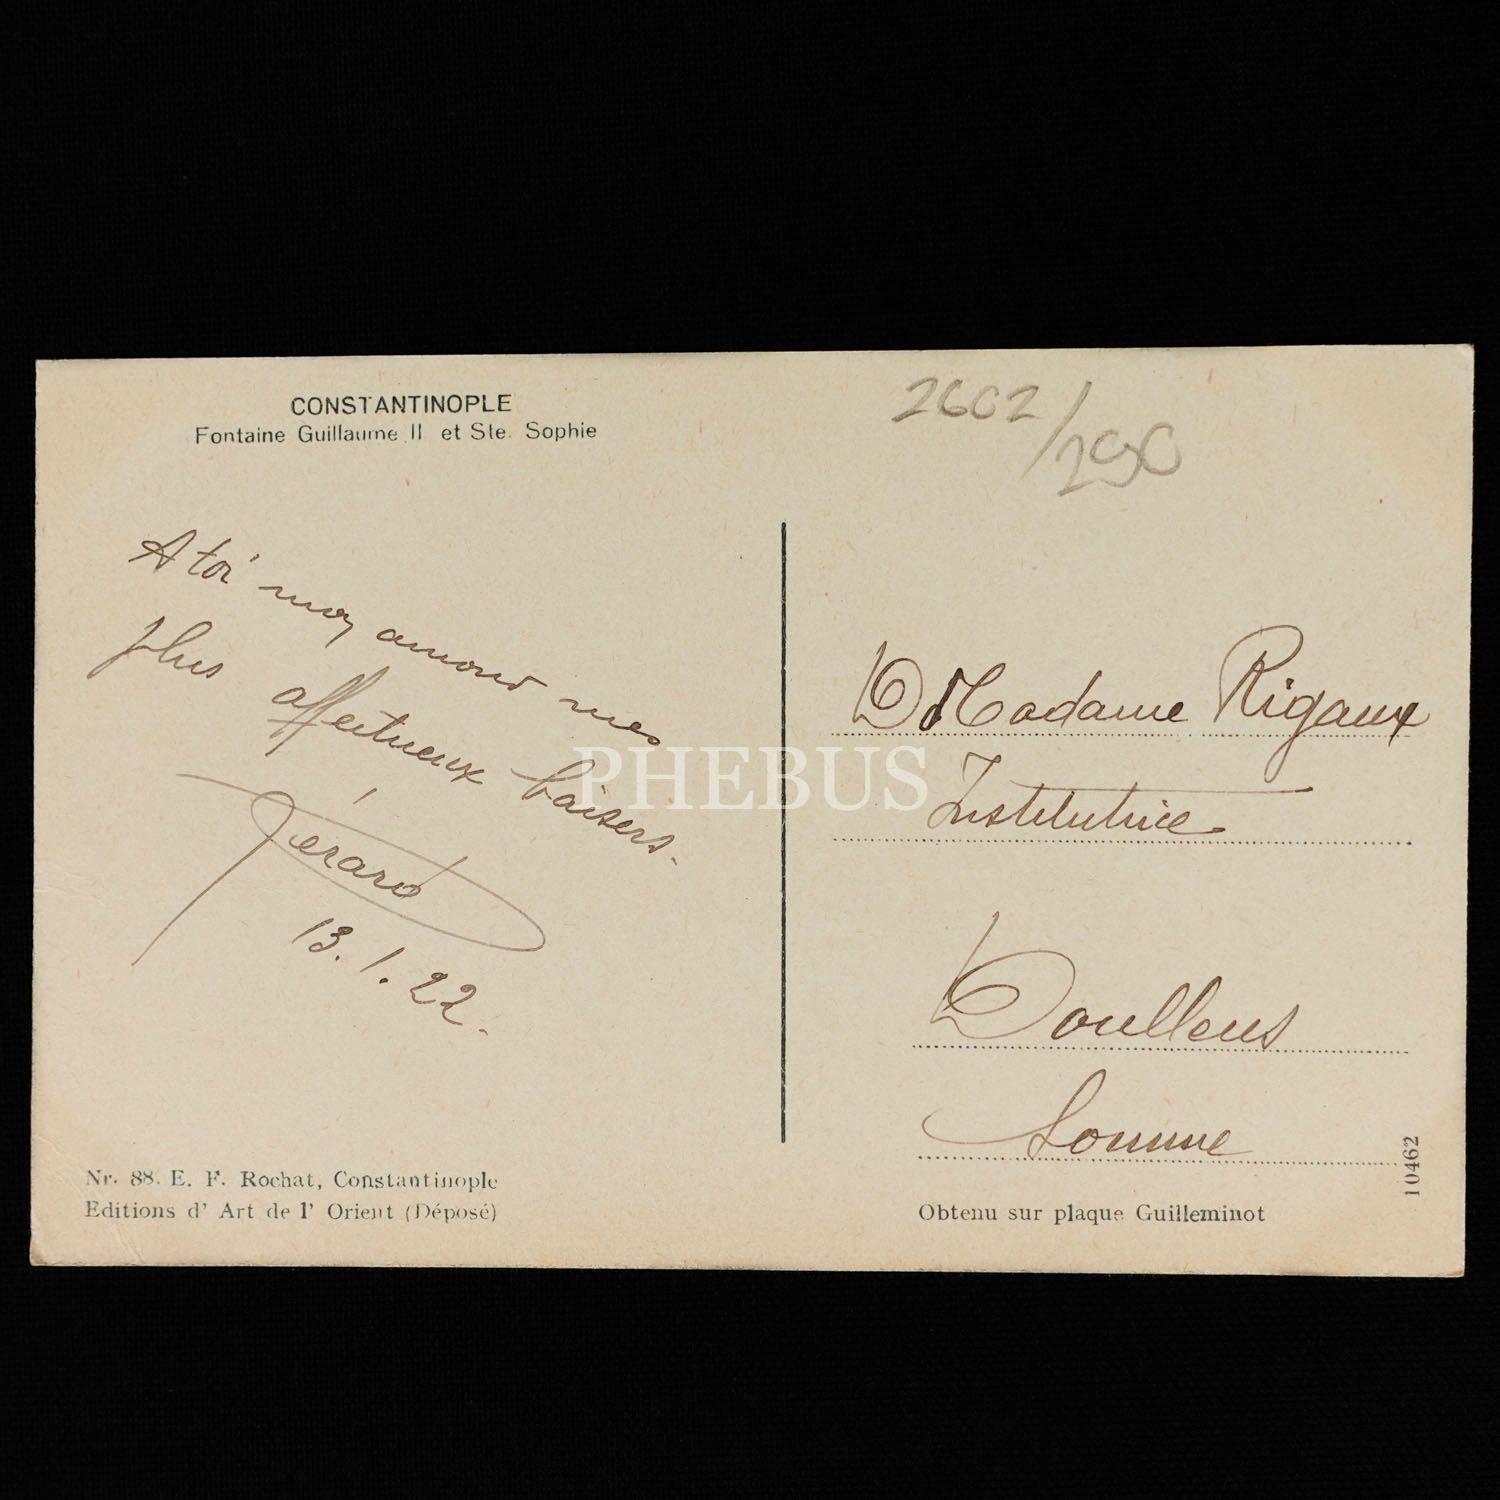 CONSTANTINOPLE
Fontaine Guillaume II et Ste. Sophie
A toi mon amour mes
plus affectueux baisers.
Gérard
13.1.22.
2602/290
Madame Rigaux
Institutrice
Doullens
Somme
Nr. 88. E. F. Rochat, Constantinople
Editions d' Art de l' Orient (Déposé)
Obtenu sur plaque Guilleminot
10462
PHEBUS